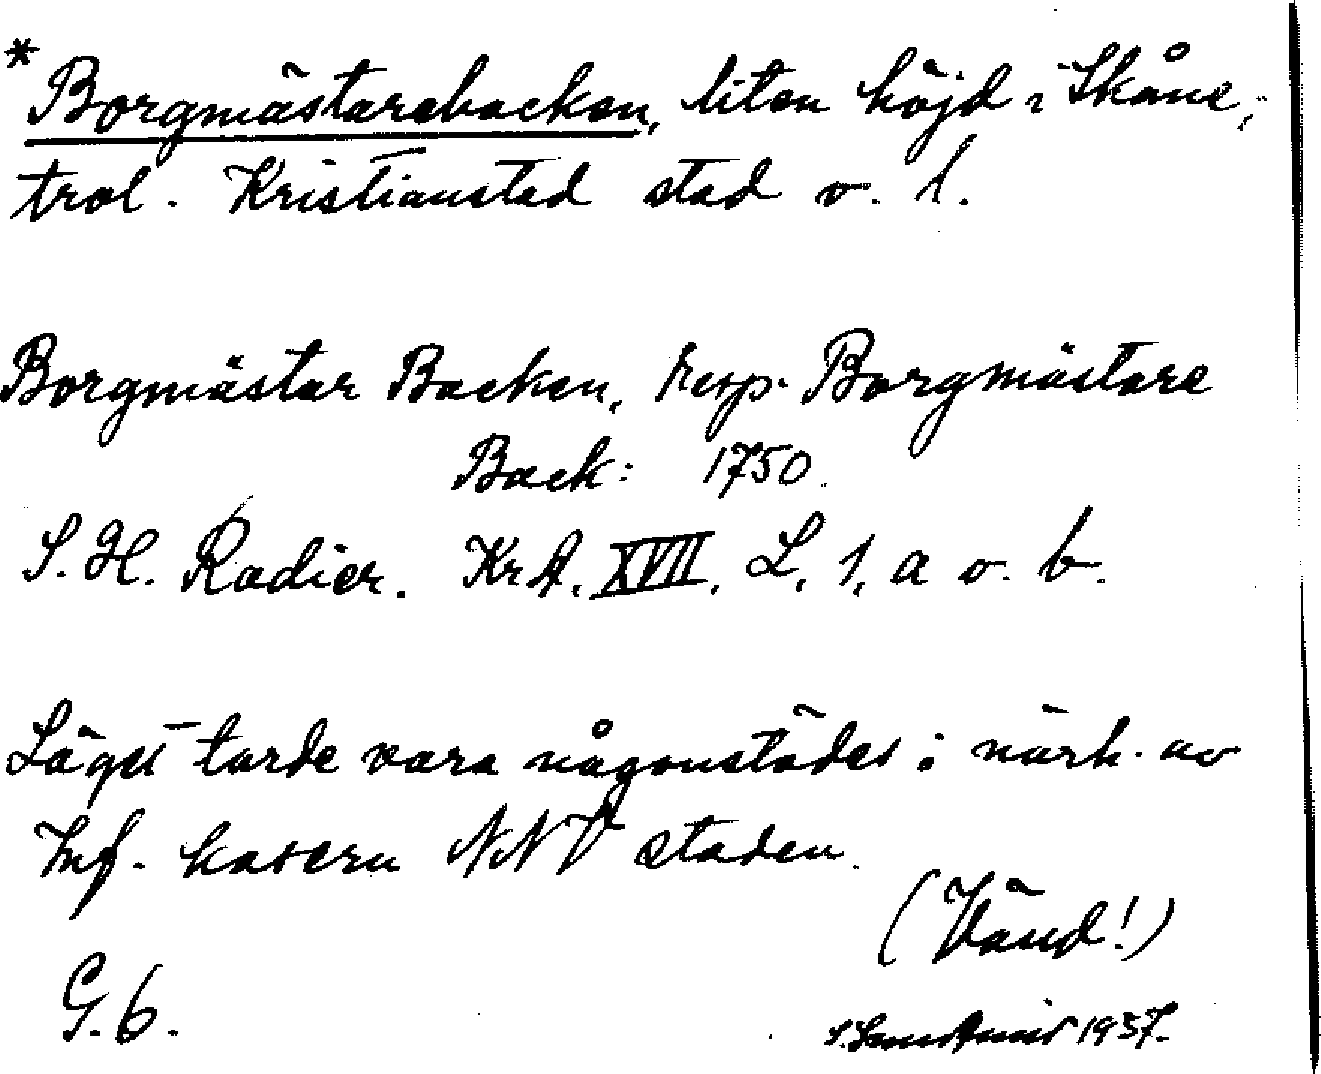 * Borgmästarebacken, liten höjd i Skåne,
trol. Kristianstad stad o. l.
Borgmästar Backen, resp. Borgmästare
Back: 1750.
S. H. Radier. KrA. XVII. L, 1, a o. b.
Läget torde vara någonstädes i närh. av
Inf. kasern NNV staden.
(Vänd!)
G. 6.
1937.